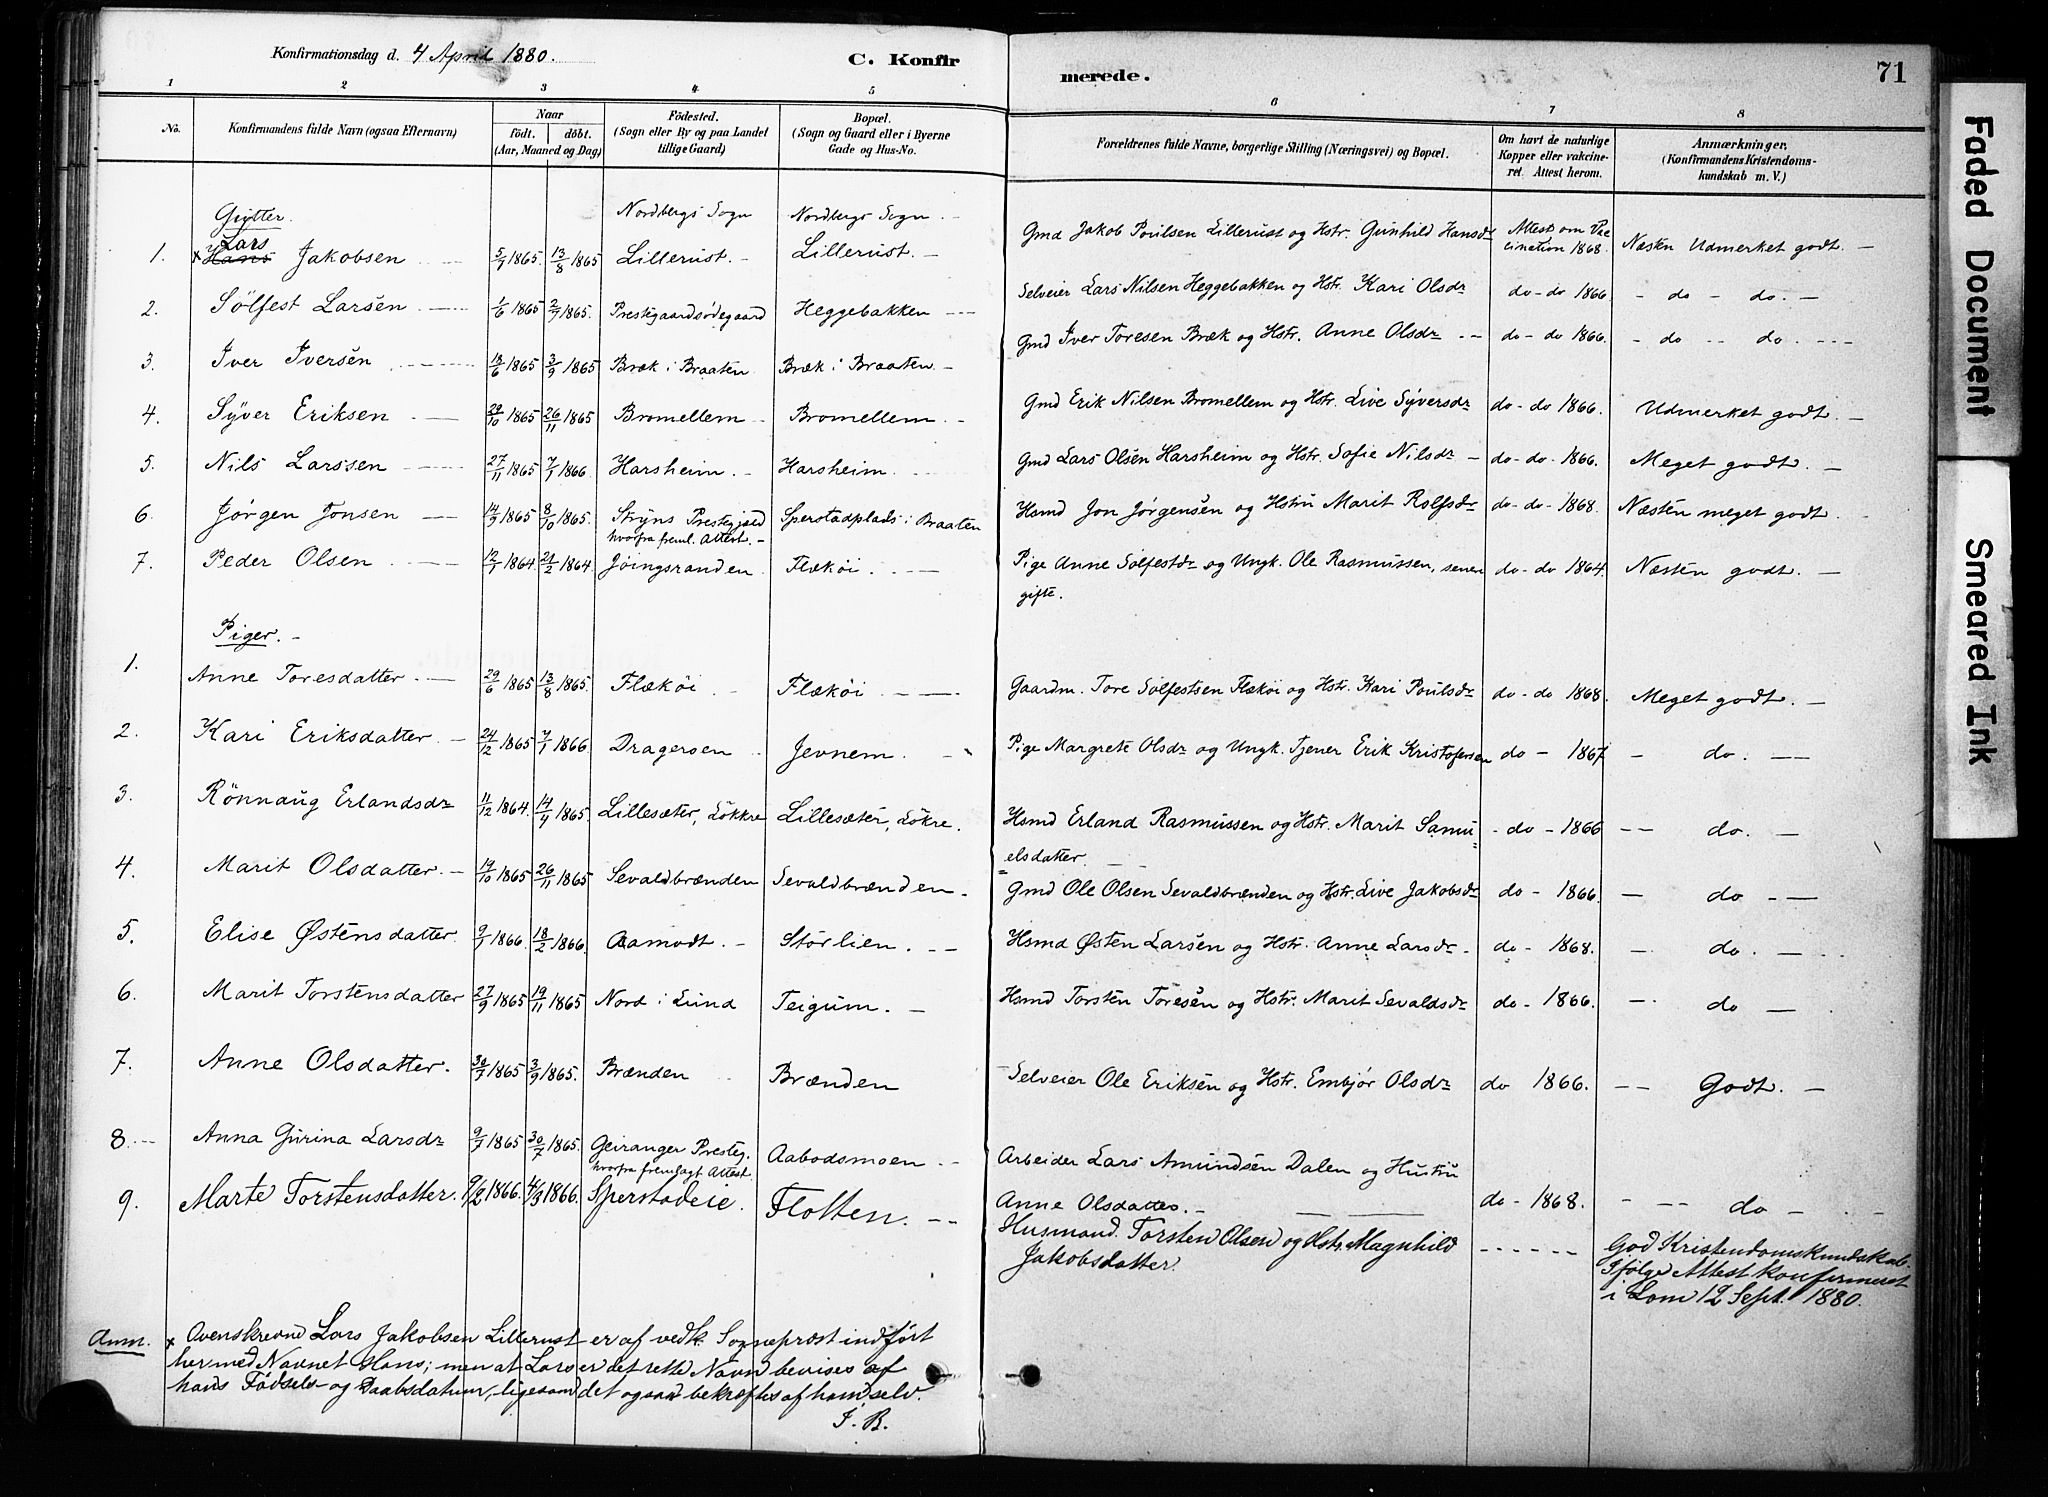 Konfirmationsdag d. 4 April 1880.
C. Konfirmerede.
71
1 2 3 4 5 6 7 8
No.
Konfirmandens fulde Navn (ogsaa Efternavn)
Naar
født. døbt.
(Aar, Maaned og Dag)
Fødested.
(Sogn eller By og paa Landet
tillige Gaard)
Bopæl.
(Sogn og Gaard eller i Byerne
Gade og Hus-No.
Forældrenes fulde Navne, borgerlige Stilling (Næringsvei) og Bopæl.
Om havt de naturlige
Kopper eller vakcine-
ret. Attest herom.
Anmærkninger.
(Konfirmandens Kristendoms-
kundskab m. V.)
Gutter. Nordbergs Sogn Nordbergs Sogn. -
Lars
1. x Hans Jakobsen 5/7 1865. 13/8 1865 Lillerust. - Lillerust. - Gmd Jakob Poulsen Lillerust og Hstr. Gunhild Hansdr Attest om Vac
cination 1868. Næsten Udmerket godt. -
2. Sölfest Larsen 1/6 1865 2/7 1865. Prestegaardsødegaard Heggebakken Selveier Lars Nilsen Heggebakken og Hstr. Kari Olsdr do - do 1866. - do - do. -
3. Iver Iversen 18/6 1865 3/9 1865 Bræk i Braaten Bræk i Braaten - Gmd Iver Toresen Bræk og Hstr. Anne Olsdr - do - do 1866. - do - do.
4. Syver Eriksen 20/10 1865 26/11 1865 Bromellem Bromellem. Gmd Erik Nilsen Bromellem og Hstr. Live Syversdr do - do 1866. Udmerket godt. -
5. Nils Larssen 27/11 1865 7/1 1866 Harsheim. - Harsheim. Gmd Lars Olsen Harsheim og Hstr. Sofie Nilsdr - do - do - 1866. Meget godt. -
6. Jørgen Jonsen 14/9 1865 8/10 1865. Stryns Prestegjæld Sperstadplads i Braaten Hsmd Jon Jørgensen og Hstru Marit Rolfsdr do - do - 1868. Næsten meget godt.
hvorfra freml. Attest. -
7. Peder Olsen 12/1 1864. 21/2 1864. Jøingsranden Flækøi. Pige Anne Sölfestdr og Ungk. Ole Rasmussen, senere do - do 1864. Næsten godt. -
gifte.
Piger. -
1. Anne Toresdatter 29/6 1865 13/8 1865. Flækøi Flækøi Gaardm. Tore Sölfestsen Flækøi og Hstr. Kari Poulsdr do - do 1868. Meget godt. -
2. Kari Eriksdatter. - 24/12 1865 7/1 1866 Dragersen Jevnem. Pige Margrete Olsdr og Ungk. Tjener Erik Kristofersen do - 1867 - do. -
3. Rönnaug Erlandsdr 11/12 1864. 14/4 1865. Lillesæter, Lökkre Lillesæter, Lökre. Hsmd Erland Rasmussen og Hstr. Marit Samu - do - 1866 - do. -
elsdatter
4. Marit Olsdatter. - 19/10 1865 26/11 1865 Sevaldbrænden Sevaldbrænden. Gmd Ole Olsen Sevaldbrænden og Hstr. Live Jakobsdr do - 1866. - do - -
5. Elise Østensdatter. 9/1 1866. 18/2 1866. Aamodt. - Størlien. Hsmd Østen Larsen og Hstr. Anne Larsdr. do - 1868. - do. -
6. Marit Torstensdatter 27/9 1865 19/11 1865 Nord i Lund Teigum. - Hsmd Torsten Toresen og Hstr. Marit Sevaldsdr do - 1866. - do -
7. Anne Olsdatter. 30/7 1865 3/9 1865. Brænden Brænden Selveier Ole Eriksen og Hstr. Embjör Olsdr do 1866. - Godt. -
8. Anna Gurina Larsdr 9/7 1865 30/7 1865. Geiranger Presteg. Aabodsmoen. Arbeider Lars Amundsen Dalen og Hustru
hvorfra fremlagt Attest.
Anne Olsdatter. - do - 1868. - do -
9. Marte Torstensdatter. 9/2 1866. 4/3 1866. Sperstadeie. Flotten. Husmand. Torsten Olsen og Hstr. Magnhild
Jakobsdatter.
God Kristendomskundskab.
Ifølge Attest konfirmeret
i Lom 12 Sept. 1880.
Anm. x Ovenskrevne Lars Jakobsen Lillerust er af vedk. Sogneprest indført
her med Navnet Hans; men at Lars er det rette Navn bevises af
hans Fødsels- og Daabsdatum, ligesom det ogsaa bekræftes af ham selv.
J. B.
Faded Document
Smeared Ink